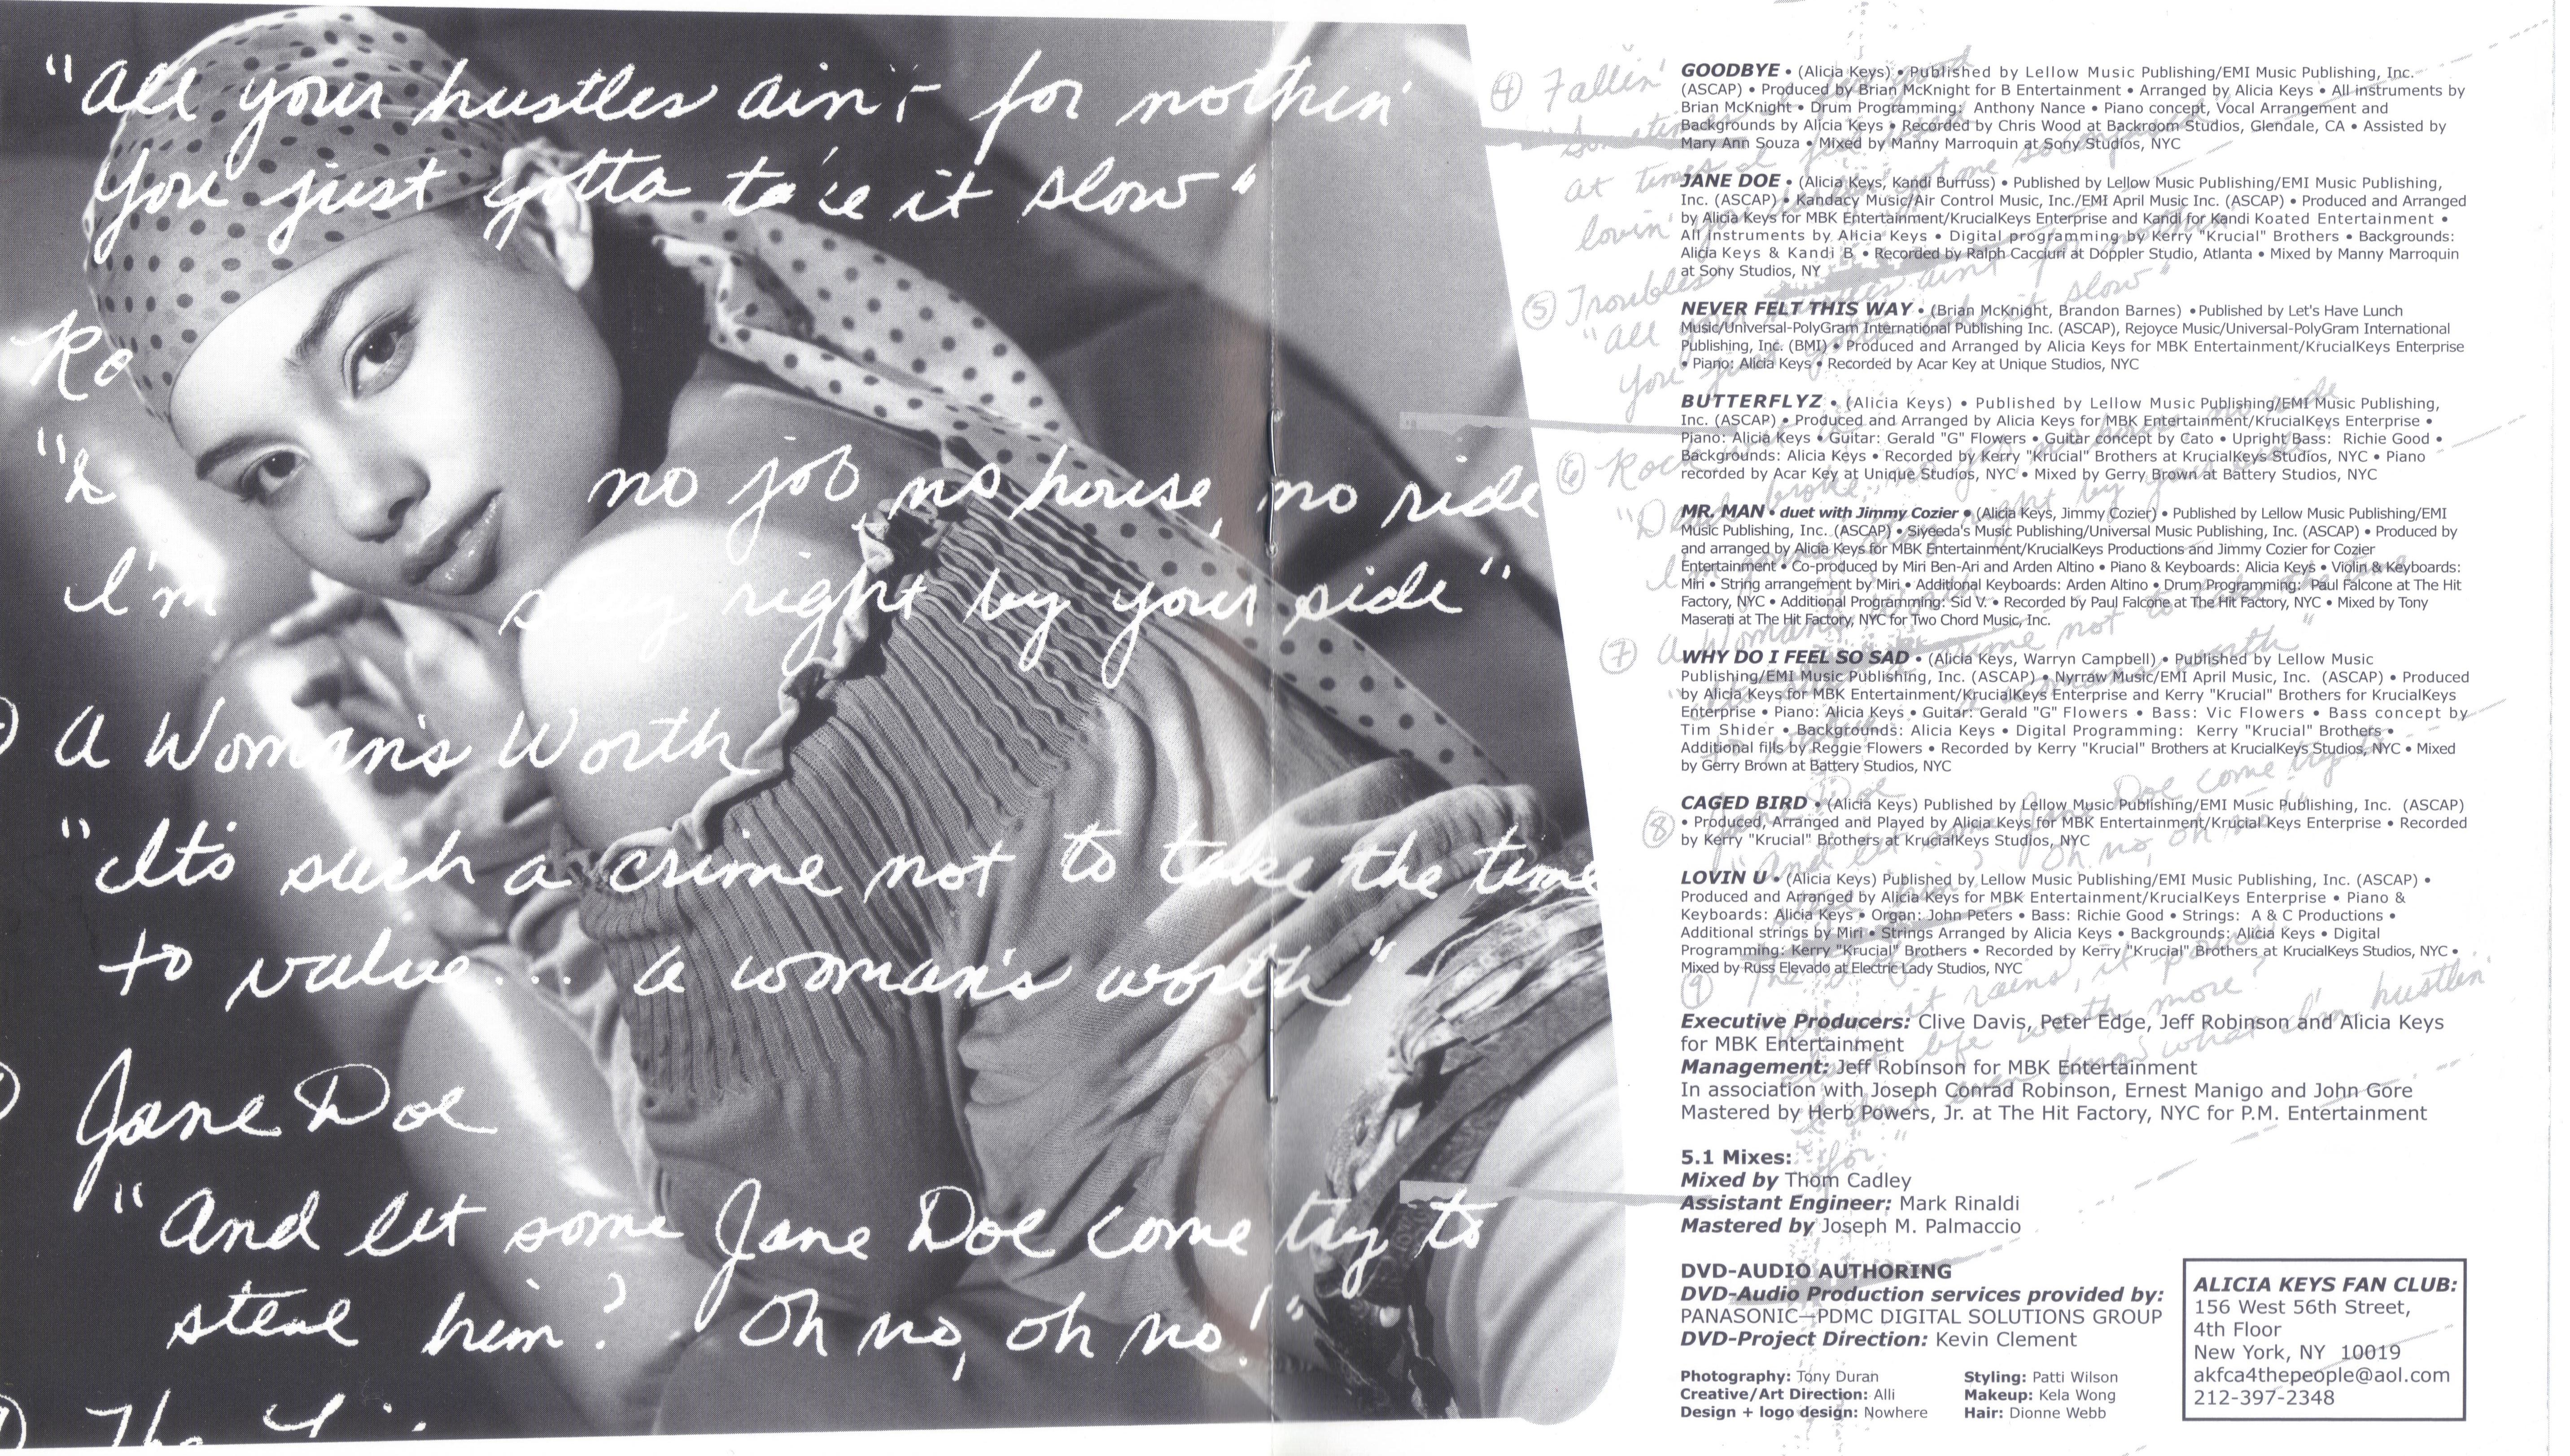 "All your hustles ain't for nothin'
You just gotta take it slow"
Ro
"D
I'm
no job, no house, no ride
stay right by your side"
A Woman's Worth
"It's such a crime not to take the time
to value... a woman's worth"
Jane Doe
"And let some Jane Doe come try to
steal him? Oh no, oh no!"
The Li
④ Fallin'
"Sometimes I feel good
at times I feel used
lovin' you darlin' got me so confused"
⑤ Troubles
"All your hustles ain't for nothin'
You just gotta take it slow"
⑥ Rock wit U
"Dead broke, no job, no house, no ride
I'm gonna stay right by your side"
⑦ A Woman's Worth
"It's such a crime not to take the time
to value... a woman's worth"
⑧ Jane Doe
"And let some Jane Doe come try to
steal him? Oh no, oh no!"
⑨ The Life
when it rains, it pours
life worth more?
I don't even know what I'm hustlin'
for"
GOODBYE • (Alicia Keys) • Published by Lellow Music Publishing/EMI Music Publishing, Inc.
(ASCAP) • Produced by Brian McKnight for B Entertainment • Arranged by Alicia Keys • All instruments by
Brian McKnight • Drum Programming: Anthony Nance • Piano concept, Vocal Arrangement and
Backgrounds by Alicia Keys • Recorded by Chris Wood at Backroom Studios, Glendale, CA • Assisted by
Mary Ann Souza • Mixed by Manny Marroquin at Sony Studios, NYC
JANE DOE • (Alicia Keys, Kandi Burruss) • Published by Lellow Music Publishing/EMI Music Publishing,
Inc. (ASCAP) • Kandacy Music/Air Control Music, Inc./EMI April Music Inc. (ASCAP) • Produced and Arranged
by Alicia Keys for MBK Entertainment/KrucialKeys Enterprise and Kandi for Kandi Koated Entertainment •
All instruments by Alicia Keys • Digital programming by Kerry "Krucial" Brothers • Backgrounds:
Alicia Keys & Kandi B • Recorded by Ralph Cacciuri at Doppler Studio, Atlanta • Mixed by Manny Marroquin
at Sony Studios, NY
NEVER FELT THIS WAY • (Brian McKnight, Brandon Barnes) • Published by Let's Have Lunch
Music/Universal-PolyGram International Publishing Inc. (ASCAP), Rejoyce Music/Universal-PolyGram International
Publishing, Inc. (BMI) • Produced and Arranged by Alicia Keys for MBK Entertainment/KrucialKeys Enterprise
• Piano: Alicia Keys • Recorded by Acar Key at Unique Studios, NYC
BUTTERFLYZ • (Alicia Keys) • Published by Lellow Music Publishing/EMI Music Publishing,
Inc. (ASCAP) • Produced and Arranged by Alicia Keys for MBK Entertainment/KrucialKeys Enterprise •
Piano: Alicia Keys • Guitar: Gerald "G" Flowers • Guitar concept by Cato • Upright Bass: Richie Good •
Backgrounds: Alicia Keys • Recorded by Kerry "Krucial" Brothers at KrucialKeys Studios, NYC • Piano
recorded by Acar Key at Unique Studios, NYC • Mixed by Gerry Brown at Battery Studios, NYC
MR. MAN • duet with Jimmy Cozier • (Alicia Keys, Jimmy Cozier) • Published by Lellow Music Publishing/EMI
Music Publishing, Inc. (ASCAP) • Siyeeda's Music Publishing/Universal Music Publishing, Inc. (ASCAP) • Produced by
and arranged by Alicia Keys for MBK Entertainment/KrucialKeys Productions and Jimmy Cozier for Cozier
Entertainment • Co-produced by Miri Ben-Ari and Arden Altino • Piano & Keyboards: Alicia Keys • Violin & Keyboards:
Miri • String arrangement by Miri • Additional Keyboards: Arden Altino • Drum Programming: Paul Falcone at The Hit
Factory, NYC • Additional Programming: Sid V. • Recorded by Paul Falcone at The Hit Factory, NYC • Mixed by Tony
Maserati at The Hit Factory, NYC for Two Chord Music, Inc.
WHY DO I FEEL SO SAD • (Alicia Keys, Warryn Campbell) • Published by Lellow Music
Publishing/EMI Music Publishing, Inc. (ASCAP) • Nyrraw Music/EMI April Music, Inc. (ASCAP) • Produced
by Alicia Keys for MBK Entertainment/KrucialKeys Enterprise and Kerry "Krucial" Brothers for KrucialKeys
Enterprise • Piano: Alicia Keys • Guitar: Gerald "G" Flowers • Bass: Vic Flowers • Bass concept by
Tim Shider • Backgrounds: Alicia Keys • Digital Programming: Kerry "Krucial" Brothers •
Additional fills by Reggie Flowers • Recorded by Kerry "Krucial" Brothers at KrucialKeys Studios, NYC • Mixed
by Gerry Brown at Battery Studios, NYC
CAGED BIRD • (Alicia Keys) Published by Lellow Music Publishing/EMI Music Publishing, Inc. (ASCAP)
• Produced, Arranged and Played by Alicia Keys for MBK Entertainment/Krucial Keys Enterprise • Recorded
by Kerry "Krucial" Brothers at KrucialKeys Studios, NYC
LOVIN U • (Alicia Keys) Published by Lellow Music Publishing/EMI Music Publishing, Inc. (ASCAP) •
Produced and Arranged by Alicia Keys for MBK Entertainment/KrucialKeys Enterprise • Piano &
Keyboards: Alicia Keys • Organ: John Peters • Bass: Richie Good • Strings: A & C Productions •
Additional strings by Miri • Strings Arranged by Alicia Keys • Backgrounds: Alicia Keys • Digital
Programming: Kerry "Krucial" Brothers • Recorded by Kerry "Krucial" Brothers at KrucialKeys Studios, NYC •
Mixed by Russ Elevado at Electric Lady Studios, NYC
Executive Producers: Clive Davis, Peter Edge, Jeff Robinson and Alicia Keys
for MBK Entertainment
Management: Jeff Robinson for MBK Entertainment
In association with Joseph Conrad Robinson, Ernest Manigo and John Gore
Mastered by Herb Powers, Jr. at The Hit Factory, NYC for P.M. Entertainment
5.1 Mixes:
Mixed by Thom Cadley
Assistant Engineer: Mark Rinaldi
Mastered by Joseph M. Palmaccio
DVD-AUDIO AUTHORING
DVD-Audio Production services provided by:
PANASONIC—PDMC DIGITAL SOLUTIONS GROUP
DVD-Project Direction: Kevin Clement
Photography: Tony Duran
Creative/Art Direction: Alli
Design + logo design: Nowhere
Styling: Patti Wilson
Makeup: Kela Wong
Hair: Dionne Webb
ALICIA KEYS FAN CLUB:
156 West 56th Street,
4th Floor
New York, NY 10019
akfca4thepeople@aol.com
212-397-2348